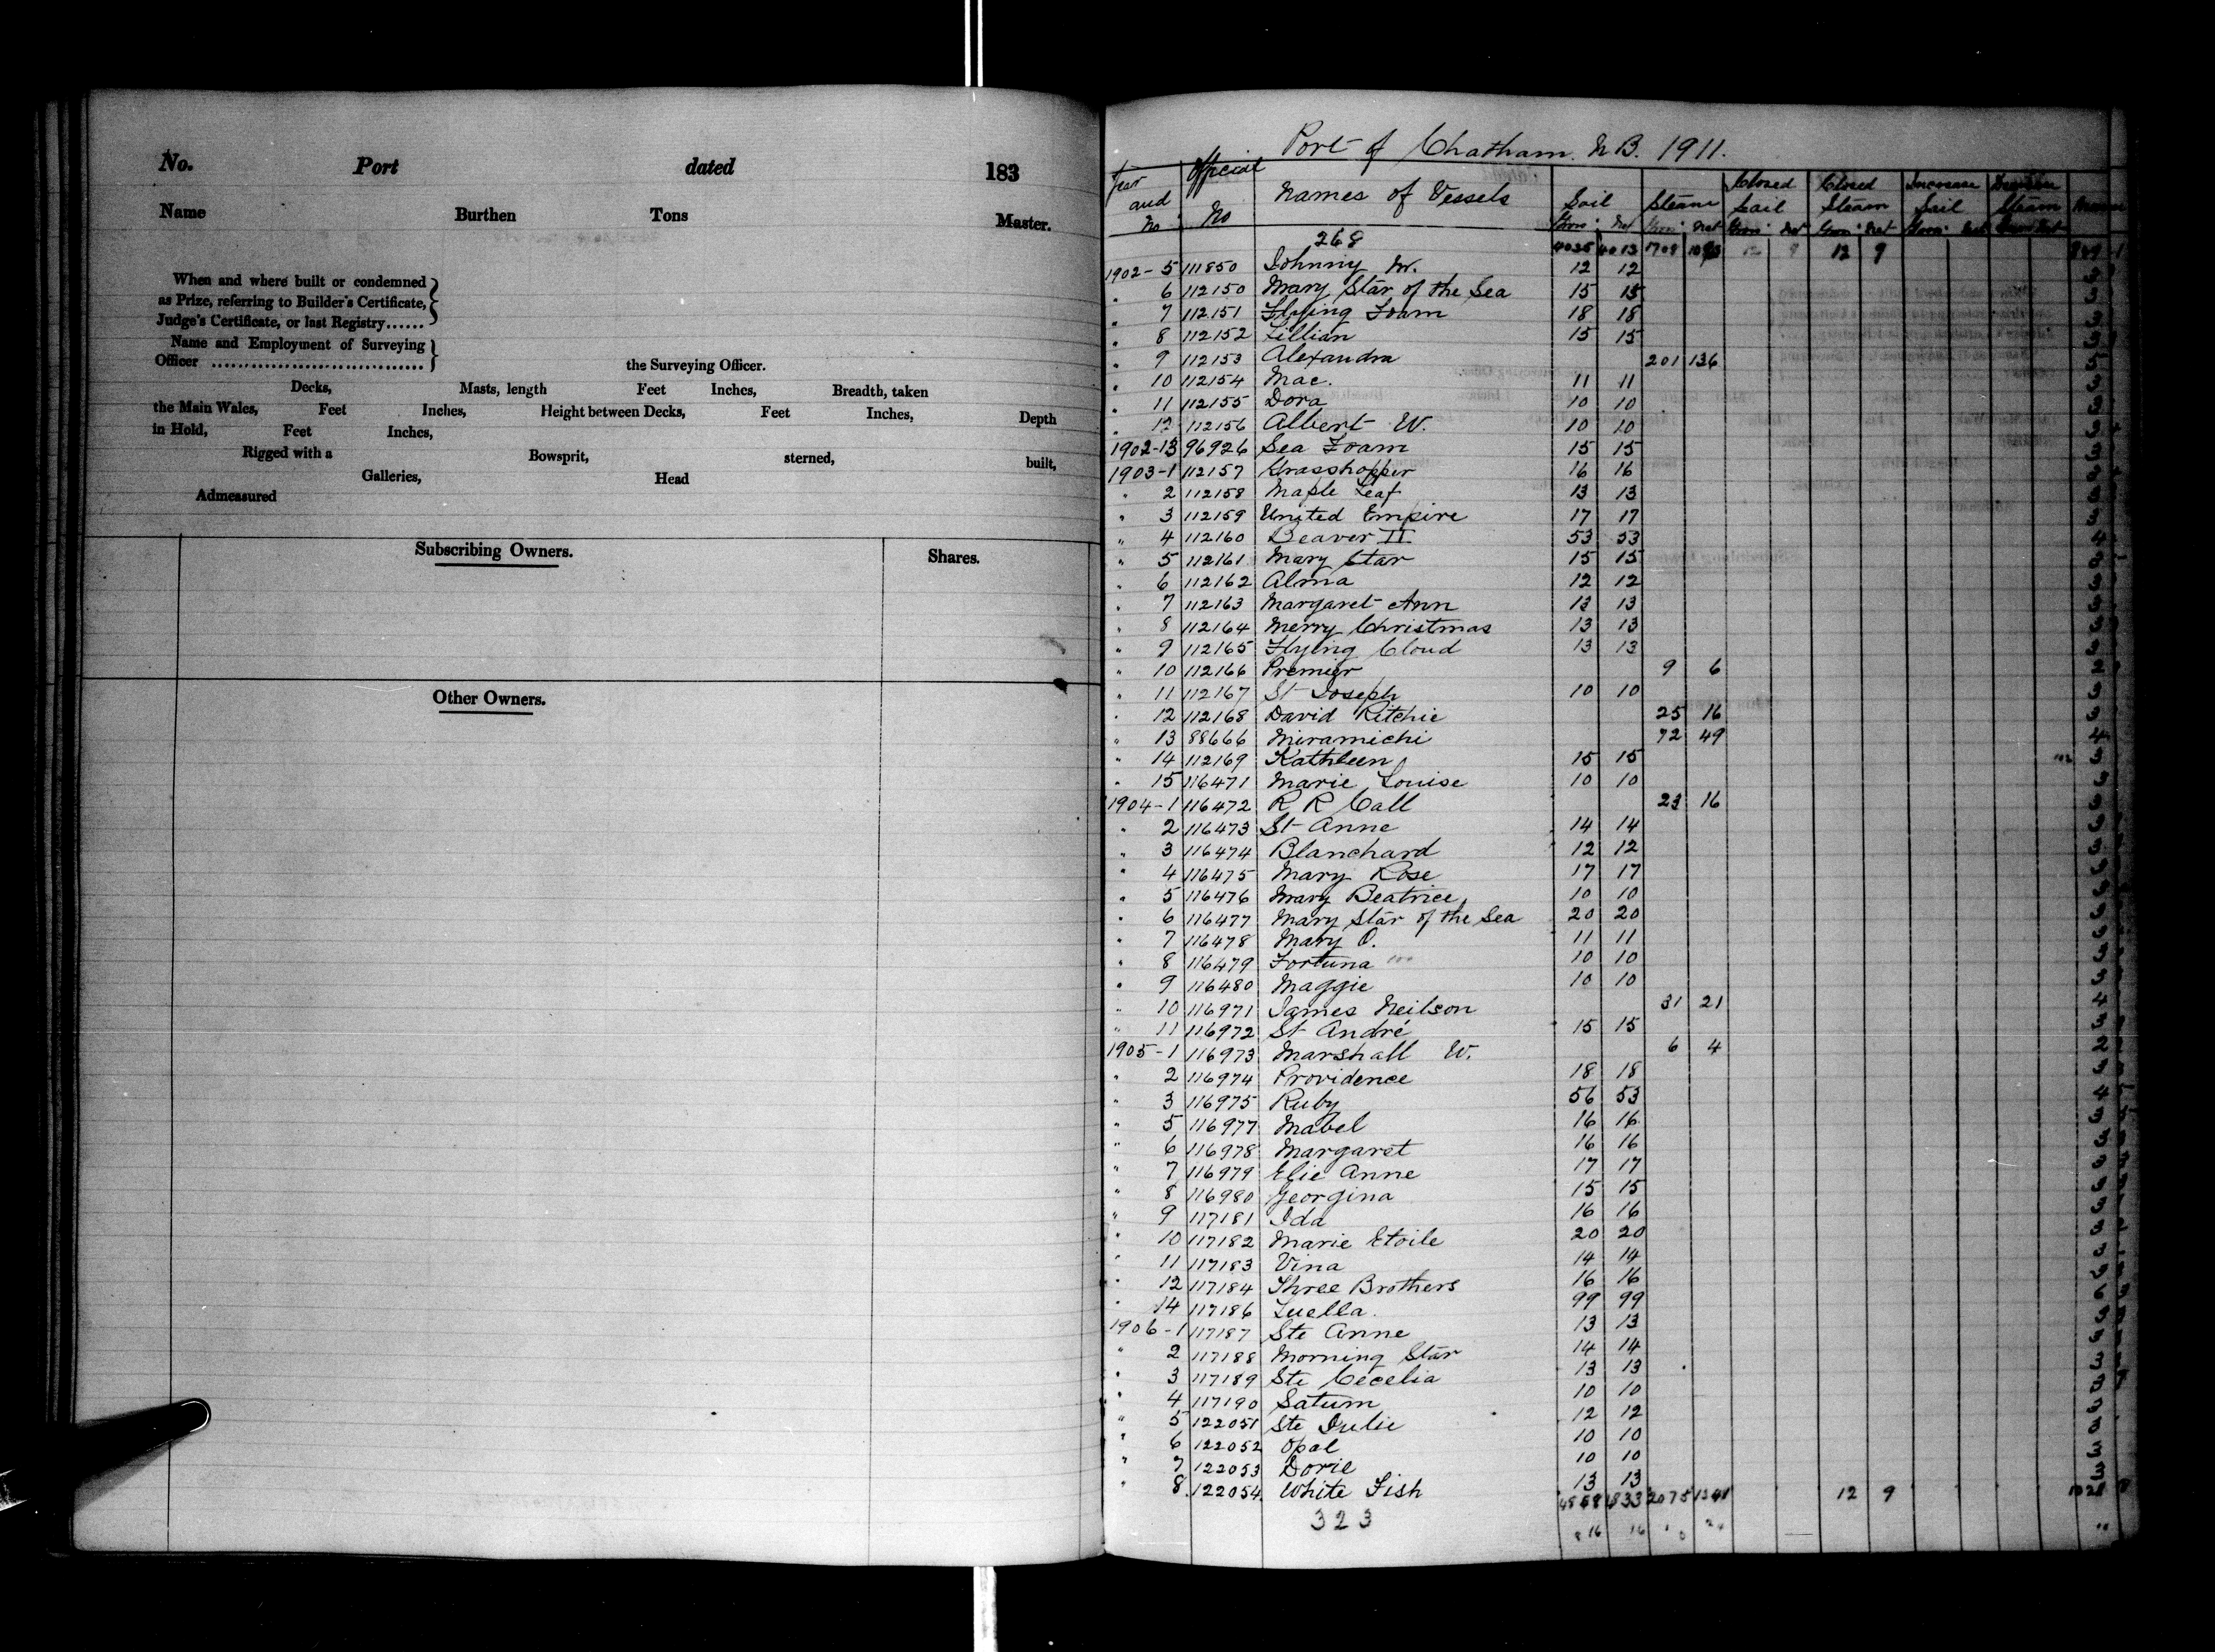 No. Port dated 183
Name Burthen Tons Master.
When and where built or condemned
as Prize, referring to Builder's Certificate,
Judge's Certificate, or last Registry......
Name and Employment of Surveying
Officer ................................ the Surveying Officer.
Decks, Masts, length Feet Inches, Breadth, taken
the Main Wales, Feet Inches, Height between Decks, Feet Inches, Depth
in Hold, Feet Inches,
Rigged with a Bowsprit, sterned, built,
Galleries, Head
Admeasured
Subscribing Owners. Shares.
Other Owners.
Port of Chatham. N.B. 1911.
Year and No. Official No Names of Vessels Sail Steam Closed Sail Closed Steam Increase Sail Steam
268 4025 4013 1708 12 9
1902-5 111850 Johnny M. 12 12
" 6 112150 Mary Star of the Sea 15 15
" 7 112151 Flying Foam 18 18
" 8 112152 Lillian 15 15
" 9 112153 Alexandra 201 136
" 10 112154 Mac. 11 11
" 11 112155 Dora 10 10
" 12 112156 Albert W. 10 10
1902-13 96926 Sea Foam 15 15
1903-1 112157 Grasshopper 16 16
" 2 112158 Maple Leaf 13 13
" 3 112159 United Empire 17 17
" 4 112160 Beaver II 53 53
" 5 112161 Mary Star 15 15
" 6 112162 Alma 12 12
" 7 112163 Margaret Ann 13 13
" 8 112164 Merry Christmas 13 13
" 9 112165 Flying Cloud 13 13
" 10 112166 Premier 9 6
" 11 112167 St Joseph 10 10
" 12 112168 David Ritchie 25 16
" 13 88666 Miramichi 72 49
" 14 112169 Kathleen 15 15
" 15 116471 Marie Louise 10 10
1904-1 116472 R R Call 23 16
" 2 116473 St Anne 14 14
" 3 116474 Blanchard 12 12
" 4 116475 Mary Rose 17 17
" 5 116476 Mary Beatrice 10 10
" 6 116477 Mary Star of the Sea 20 20
" 7 116478 Mary O. 11 11
" 8 116479 Fortuna 10 10
" 9 116480 Maggie 10 10
" 10 116971 James Neilson 31 21
" 11 116972 St André 15 15
1905-1 116973 Marshall W. 6 4
" 2 116974 Providence 18 18
" 3 116975 Ruby 56 53
" 5 116977 Mabel 16 16
" 6 116978 Margaret 16 16
" 7 116979 Elie Anne 17 17
" 8 116980 Georgina 15 15
" 9 117181 Ida 16 16
" 10 117182 Marie Etoile 20 20
" 11 117183 Vina 14 14
" 12 117184 Three Brothers 16 16
" 14 117186 Luella. 99 99
1906-1 117187 Ste Anne 13 13
" 2 117188 Morning Star 14 14
" 3 117189 Ste Cecelia 13 13
" 4 117190 Saturn 10 10
" 5 122051 Ste Julie 12 12
" 6 122052 Opal 10 10
" 7 122053 Dorie 10 10
" 8 122054 White Fish 13 13
323 4833 2075 12 9